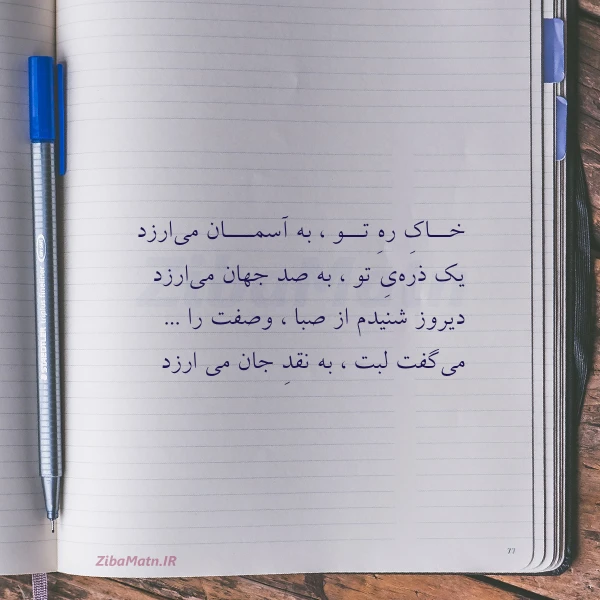 خـــاکِ رهِ تـــو ، به آسمـــــان می‌ارزد
یک ذره‌یِ تو ، به صد جهان می‌ارزد
دیروز شنیدم از صبا ، وصفت را ...
می‌گفت لبت ، به نقدِ جان می ارزد
ZibaMatn.IR
77